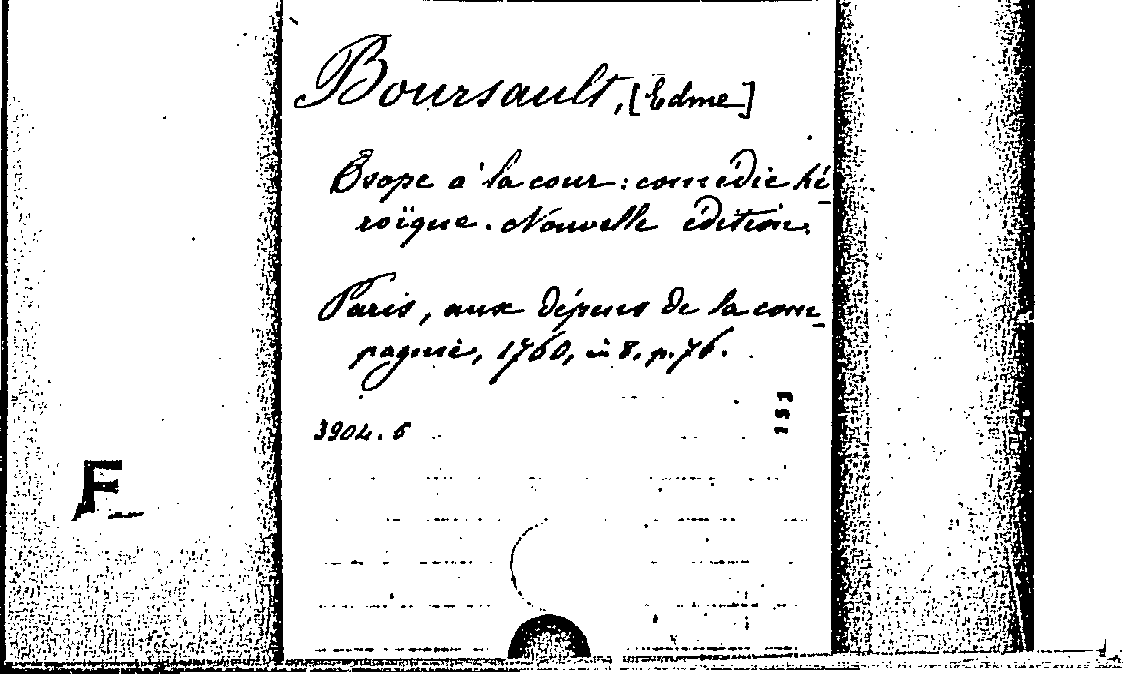 Boursault, [Edme]
Esope à la cour : comédie hé-
roïque. Nouvelle édition.
Paris, aux dépens de la com-
pagnie, 1760, in 8. p. 76.
3904. 6
153
F